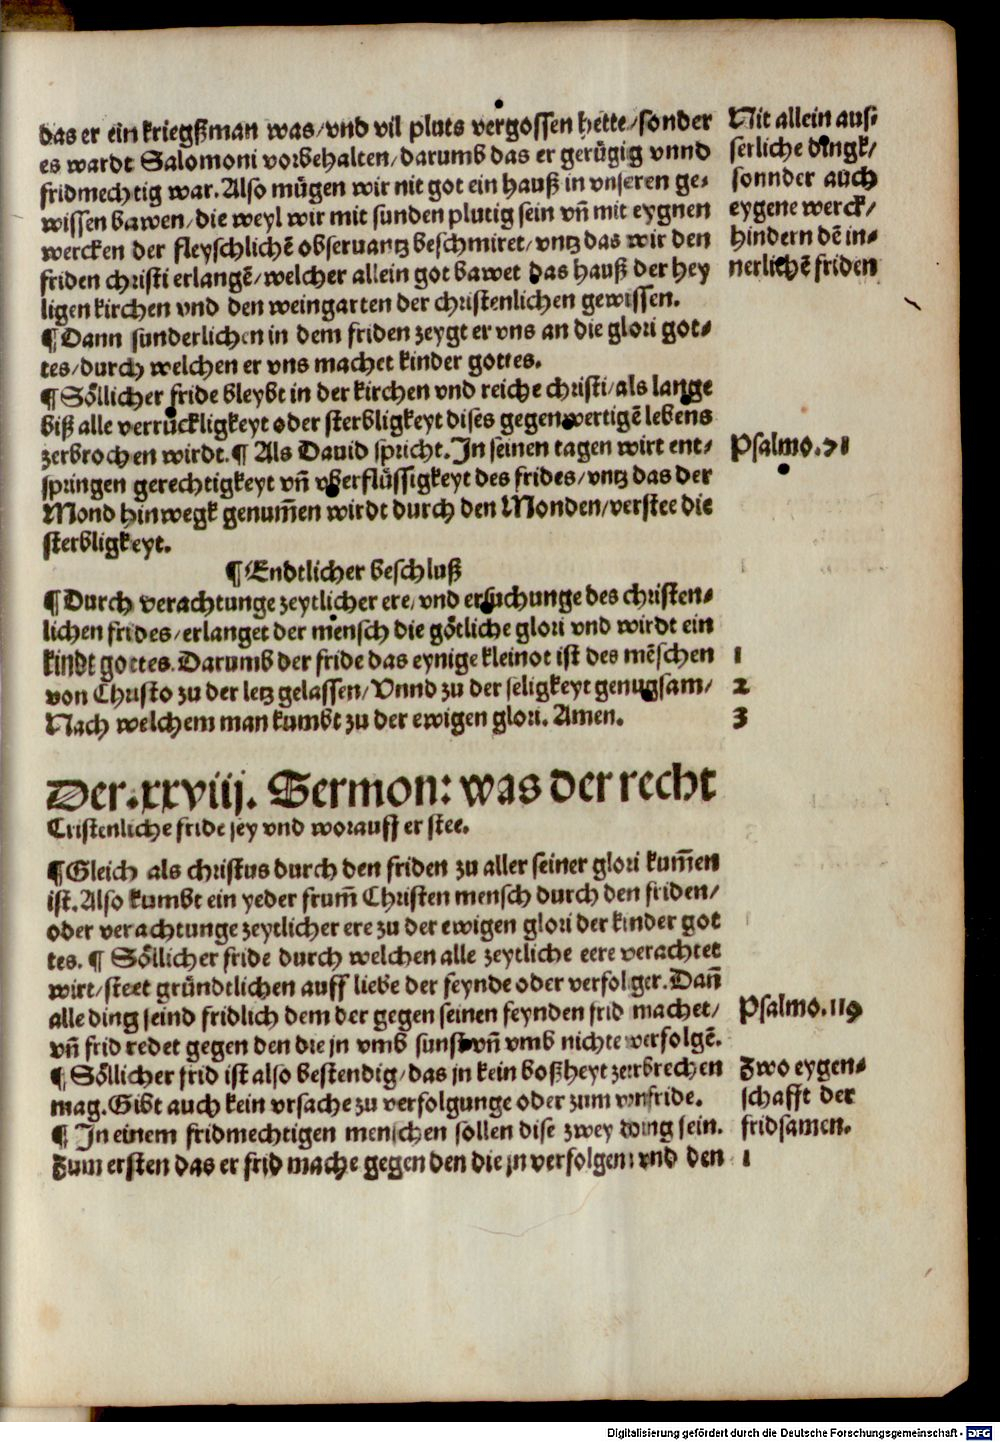 das er ein kriegßman was/vnd vil pluts vergossen hette/sonder
es wardt Salomoni vorbehalten/darumb das er gerügig vnnd
fridmechtig war. Also mügen wir nit got ein hauß in vnseren ge-
wissen bawen/die weyl wir mit sunden plutig sein vñ mit eygnen
wercken der fleyschlichẽ obseruantz beschmiret/vntz das wir den
friden christi erlangẽ/welcher allein got bawet das hauß der hey
ligen kirchen vnd den weingarten der christenlichen gewissen.
Nit allein aus-
serliche dingk/
sonnder auch
eygene werck/
hindern dẽ in-
nerlichẽ friden
¶ Dann sunderlichen in dem friden zeygt er vns an die glori got-
tes/durch welchen er vns machet kinder gottes.
¶ Söllicher fride bleybt in der kirchen vnd reiche christi/als lange
biß alle verrückligkeyt oder sterbligkeyt dises gegenwertigẽ lebens
zerbrochen wirdt. ¶ Als Dauid spricht. In seinen tagen wirt ent-
springen gerechtigkeyt vñ vberflüssigkeyt des frides/vntz das der
Mond hinwegk genum̃en wirdt durch den Monden/verstee die
sterbligkeyt.
Psalmo.71
¶ Endtlicher beschluß
¶ Durch verachtunge zeytlicher ere/vnd ersuchunge des christen-
lichen frides/erlanget der mensch die götliche glori vnd wirdt ein
kindt gottes. Darumb der fride das eynige kleinot ist des mẽschen
von Christo zu der letz gelassen/Vnnd zu der seligkeyt genugsam/
Nach welchem man kumbt zu der ewigen glori. Amen.
1
2
3
Der.xxviij. Sermon: was der recht
Cristenliche fride sey vnd worauff er stee.
¶ Gleich als christus durch den friden zu aller seiner glori kum̃en
ist. Also kumbt ein yeder frum̃ Christen mensch durch den friden/
oder verachtunge zeytlicher ere zu der ewigen glori der kinder got
tes. ¶ Söllicher fride durch welchen alle zeytliche eere verachtet
wirt/steet gründtlichen auff liebe der feynde oder verfolger. Dañ
alle ding seind fridlich dem der gegen seinen feynden frid machet/
vñ frid redet gegen den die jn vmb sunst vñ vmb nichte verfolgẽ.
Psalmo.119
¶ Söllicher frid ist also bestendig/das jn kein boßheyt zerbrechen
mag. Gibt auch kein vrsache zu verfolgunge oder zum vnfride.
¶ In einem fridmechtigen menschen sollen dise zwey ding sein.
Zum ersten das er frid mache gegen den die jn verfolgen: vnd den
Zwo eygen-
schafft der
fridsamen.
1
Digitalisierung gefördert durch die Deutsche Forschungsgemeinschaft - DFG